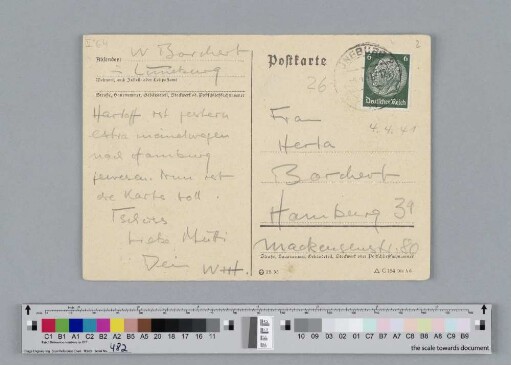 I 64
W Borchert
Absender:
Lüneburg
Wohnort, auch Zustell- oder Leitpostamt
Straße, Hausnummer, Gebäudeteil, Stockwerk od. Postschließfachnummer
Hartoff ist gestern
extra meinetwegen
nach Hamburg
gewesen. Nun ist
die Karte voll.
Tschöss
liebe Mutti
Dein W+H.
2
Postkarte
26
LÜNEBURG
6 6
Deutsches Reich
4.4.41
Frau
Herta
Borchert
Hamburg 39
Mackensenstr. 80
Straße, Hausnummer, Gebäudeteil, Stockwerk oder Postschließfachnummer
C1 B1 A1 C2 B2 A2 B5 A5 20 18 17 16 11
482
10 09 03 02 01 C7 B7 A7 C8 B8 A8 C9 B9
the scale towards document